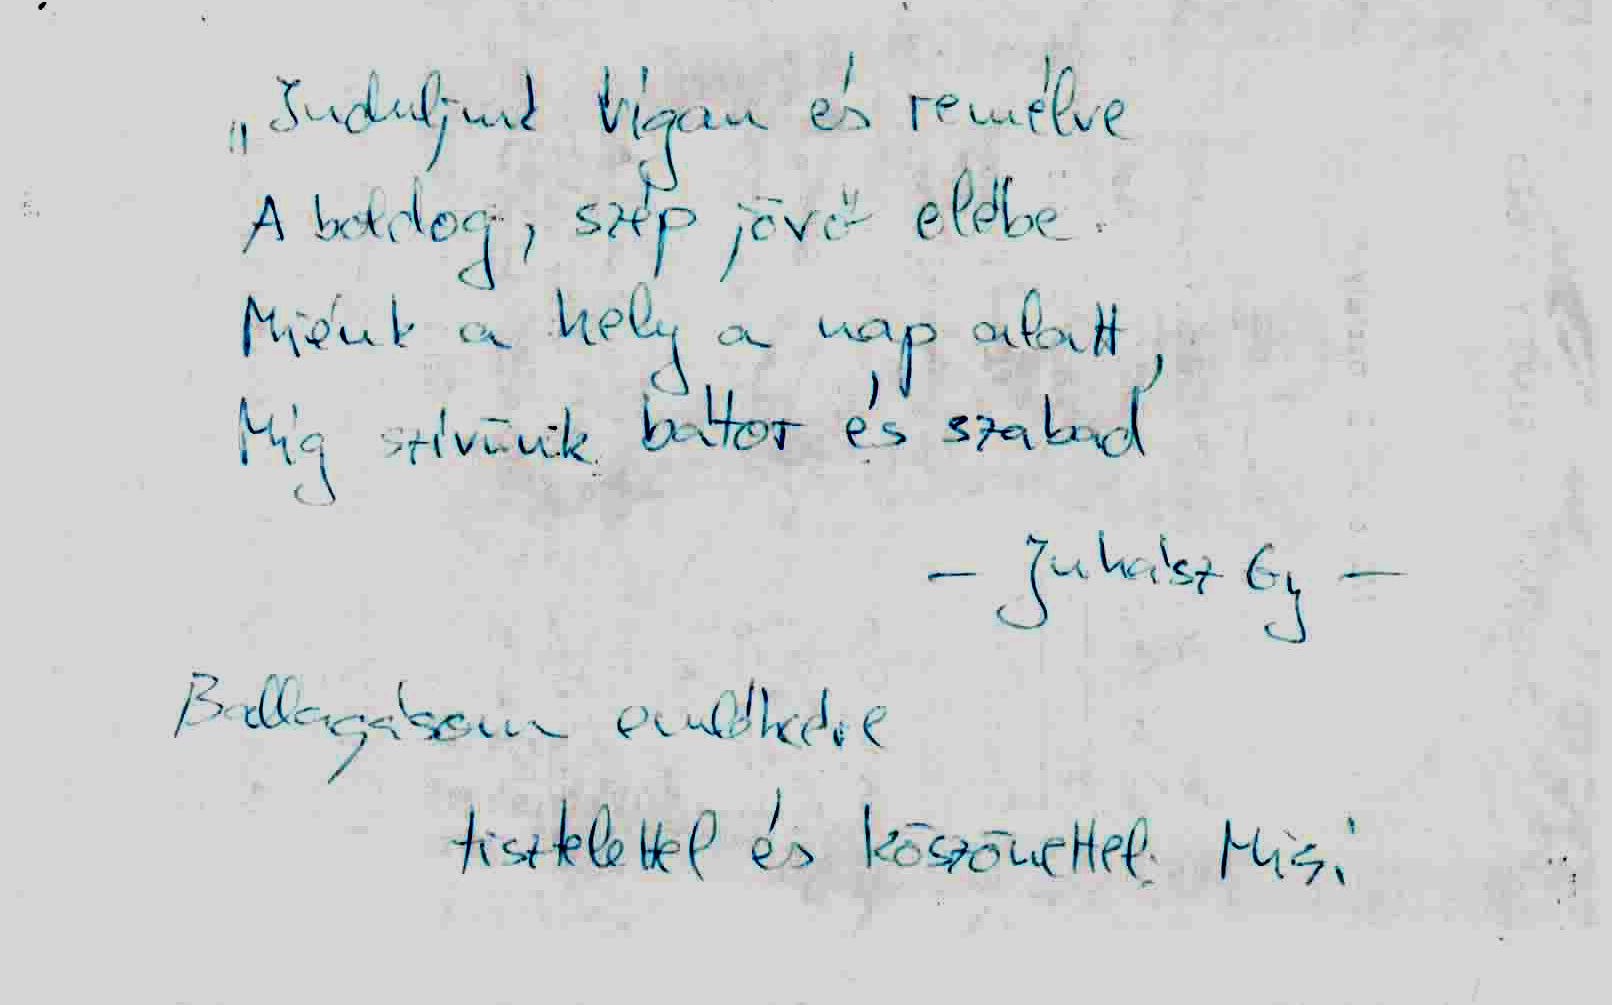 „Induljunk vígan és remélve
A boldog, szép jövő elébe.
Miénk a hely a nap alatt,
Míg szívünk bátor és szabad
– Juhász Gy –
Ballagásom emlékére
tisztelettel és köszönettel: Misi